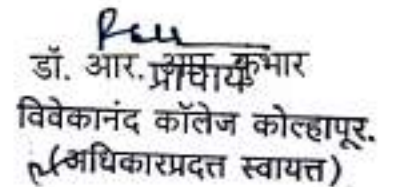 डॉ. आर. कुंभार
प्राचार्य
विवेकानंद कॉलेज कोल्हापूर.
(अधिकारप्रदत्त स्वायत्त)